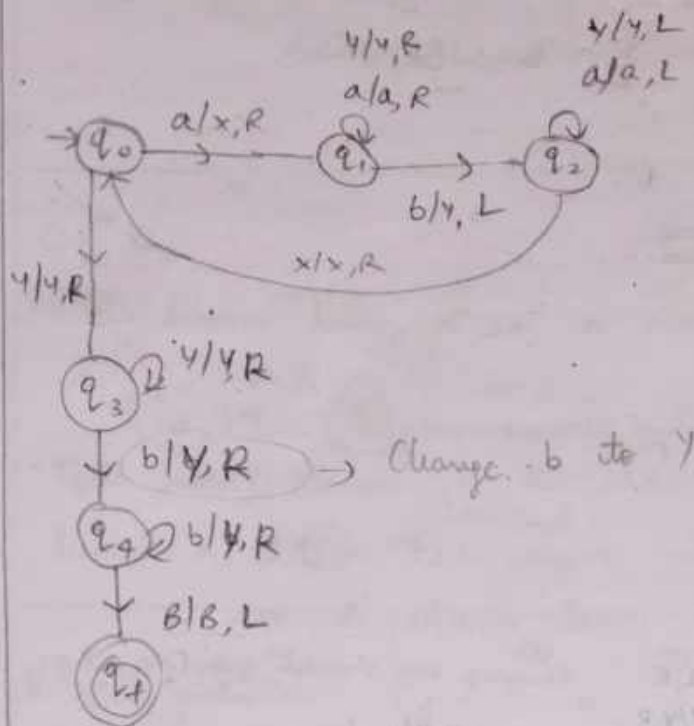 y/y, R
a/a, R
y/y, L
a/a, L
q0
a/x, R
q1
b/y, L
q2
x/x, R
y/y, R
q3
y/y, R
b/y, R → Change b to y
q4
b/y, R
B/B, L
qf